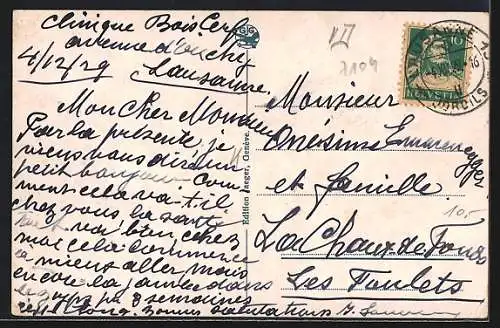 Clinique Bois Cerf
avenue d'ouchy
4/12/29 Lausanne.
Mon Cher Monsieur
Par la présente, je
viens vous dire un
petit bonjour Com-
ment cela va-t-il
chez vous la santé
va bien chez
moi cela commence
a mieux aller mais
encore la jambe dans
le 8 semaines
c'est long. Bonnes salutations
Edition Jaeger, Genève.
VII
2104
10
HELVETIA
LAUSANNE 1
Monsieur
Onésime Emmenegger
et famille
La Chaux de Fonds
Les Foulets
10.-